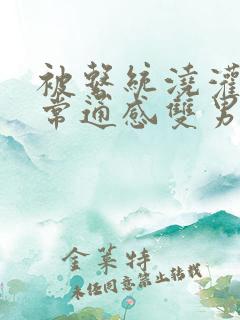 被繫統澆灌
常通感雙男
金萊特
未經同意禁止轉載